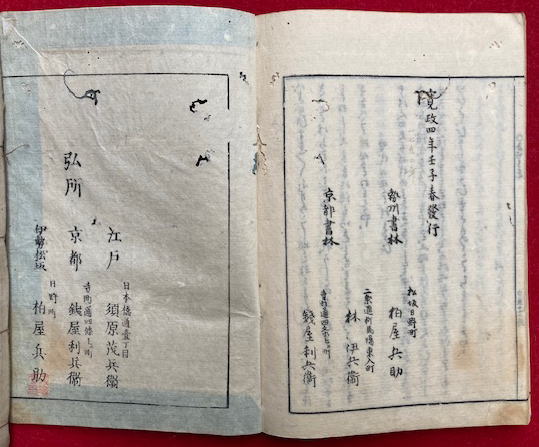 寛政四年壬子春發行
勢州書林
松坂日野町
柏屋兵助
京都書林
林 伊兵衛
寺町通四条上ル町
錢屋利兵衛
弘所
江戸
日本橋通壹丁目
須原茂兵衛
京都
寺町通四條上ル町
錢屋利兵衛
伊勢松坂
日野町
柏屋兵助